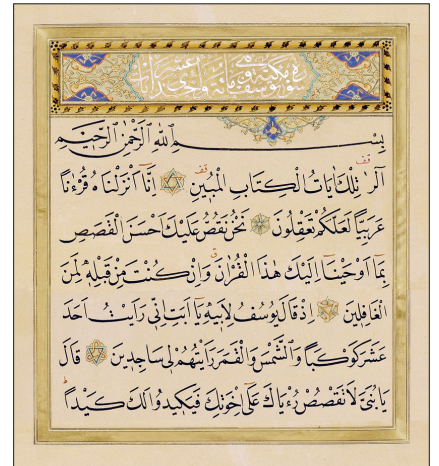 سورة يوسف مكية وهي مائة واحدى عشر ايات
بِسْمِ اللّٰهِ الرَّحْمٰنِ الرَّحِيمِ
الٓرٰ تِلْكَ اٰيَاتُ الْكِتَابِ الْمُبِينِ قف اِنَّٓا اَنْزَلْنَاهُ قُرْءٰنًا
عَرَبِيًّا لَعَلَّكُمْ تَعْقِلُونَ نَحْنُ نَقُصُّ عَلَيْكَ اَحْسَنَ الْقَصَصِ
بِمَٓا اَوْحَيْنَٓا اِلَيْكَ هٰذَا الْقُرْاٰنَ وَاِنْ كُنْتَ مِنْ قَبْلِهِ لَمِنَ
الْغَافِلِينَ اِذْ قَالَ يُوسُفُ لِاَبِيهِ يَٓا اَبَتِ اِنِّي رَاَيْتُ اَحَدَ
عَشَرَ كَوْكَبًا وَالشَّمْسَ وَالْقَمَرَ رَاَيْتُهُمْ لِي سَاجِدِينَ قَالَ
يَا بُنَيَّ لَا تَقْصُصْ رُءْيَاكَ عَلٰٓى اِخْوَتِكَ فَيَكِيدُوا لَكَ كَيْدًا